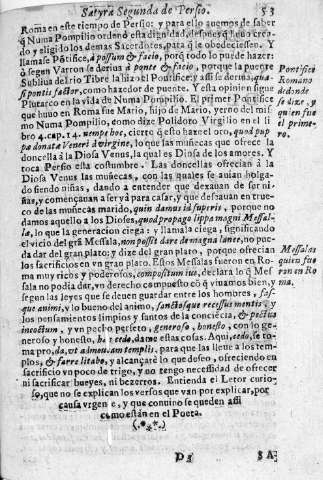 Satyra Segunda de Persio. 53
Roma en este tiempo de Persio; y para ello auemos de saber
q̃ Numa Pompilio ordenò esta dignidad, despues q̃ huuo crea-
do y eligido los demas Sacerdotes, para q̃ le obedeciessen. Y
llamase Põtifice, à possum & facio, porq̃ todo lo puede hazer:
ò segun Varron se deriua à ponte & facio, porque la puente
Sublicia del rio Tibre la hizo el Pontifice: y assi se deriua, qua-
si pontis factor, como hazedor de puente. Y esta opinion sigue
Plutarco en la vida de Numa Pompilio. El primer Pontifice
que huuo en Roma fue Mario, hijo de Mario, yerno del mis-
mo Numa Pompilio, como dize Polidoro Virgilio en el li
bro 4. cap. 14. nempe hoc, cierto q̃ esto haze el oro, quod pup
pæ donatæ Veneri à virgine, lo que las muñecas que ofrece la
doncella à la Diosa Venus, la qual es Diosa de los amores. Y
toca Persio esta costumbre. Las doncellas ofrecian à la
Diosa Venus las muñecas, con las quales se auian holga-
do siendo niñas, dando a entender que dexauan de ser ni-
ñas, y començauan a ser ya para casar, y que desseauan en true-
co de las muñecas marido, quin damus id superis, porque no
damos aquello a los Dioses, quod propago lippa magni Messal-
la, lo que la generacion ciega: y llamala ciega, significando
el vicio del grã Messala, non possit dare de magna lance, no pue-
da dar del gran plato; y dize del gran plato, porque ofrecian
los sacrificios en vn gran plato. Estos Messalas fueron en Ro-
ma muy ricos y poderosos, compositum ius, declara lo q̃ Mes
sala no podia dar, vn derecho compuesto cõ q̃ viuamos bien, y
segun las leyes que se deuen guardar entre los hombres, fas-
que animi, y lo bueno del animo, sanctosque recessus mentis, y
los pensamientos limpios y santos de la conciẽcia, & pectus
incoctum, y vn pecho perfeto, generoso, honesto, con lo ge-
neroso y honesto, hæc cedo, dame estas cosas. Aqui, cedo, se to-
ma pro, da, vt admoueam templis, para que las lleue a los tem-
plos, & farre litabo, y alcançarè lo que desseo, ofreciendo en
sacrificio vn poco de trigo, y no tengo necessidad de ofrecer
ni sacrificar bueyes, ni bezerros. Entienda el Letor curio-
so, que no se explican los versos que van por explicar, por
causa vrgente, y que conuino se queden assi
como estàn en el Poeta.
(.*.)
Pontifice
Romano
dedonde
se dize, y
quien fue
el prime-
ro.
Messalas
quien fue
ron en Ro
ma.
SA